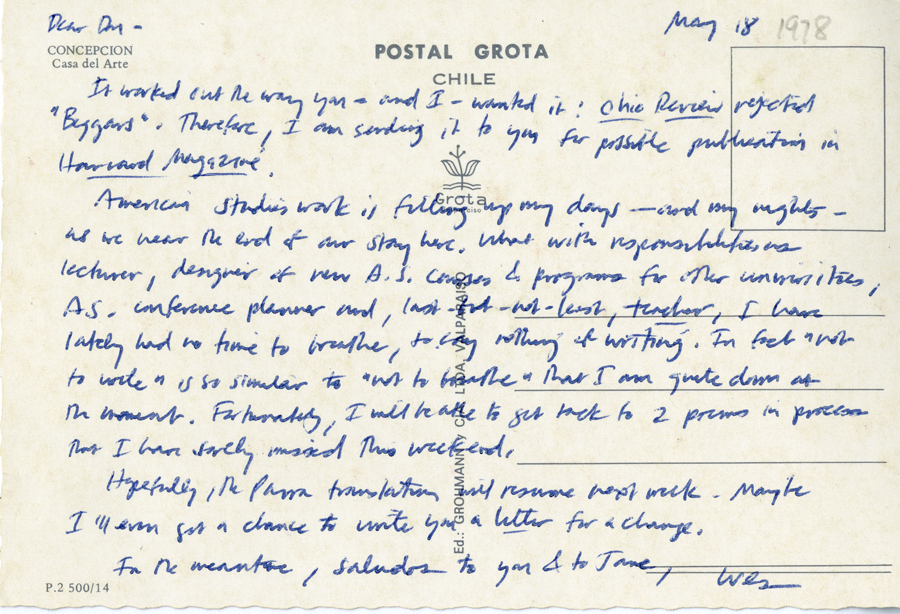 Dear Don -
May 18 1978
CONCEPCION
Casa del Arte
POSTAL GROTA
CHILE
It worked out the way you - and I - wanted it: Ohio Review rejected
"Beggars". Therefore, I am sending it to you for possible publication in
Harvard Magazine.
American studies work is filling up my days - and my nights -
as we near the end of our stay here. What with responsibilities as
lecturer, designer of new A.S. courses & programs for other universities,
A.S. conference planner and, last-but-not-least, teacher, I have
lately had no time to breathe, to say nothing of writing. In fact "not
to write" is so similar to "not to breathe" that I am quite down at
the moment. Fortunately, I will be able to get back to 2 poems in process
that I have sorely missed this weekend.
Hopefully, the Parra translations will resume next week. Maybe
I'll even get a chance to write you a letter for a change.
In the meantime, saludos to you & to Jane,
Wes
Grota
VALPARAISO
Ed.: GROHMANN Y CIA. LTDA. VALPARAISO
P.2 500/14